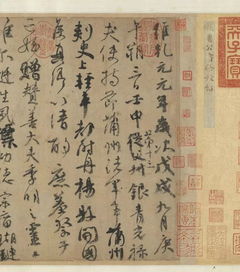 維乾元元年歲次戊戌九月庚
午朔三日壬申第十三從父銀青光祿
夫使持節蒲州諸軍事蒲州
刺史上輕車都尉丹楊縣開國
侯真卿以清酌庶羞祭于
亡姪贈贊善大夫季明之靈曰
惟爾挺生夙標幼德宗廟瑚璉